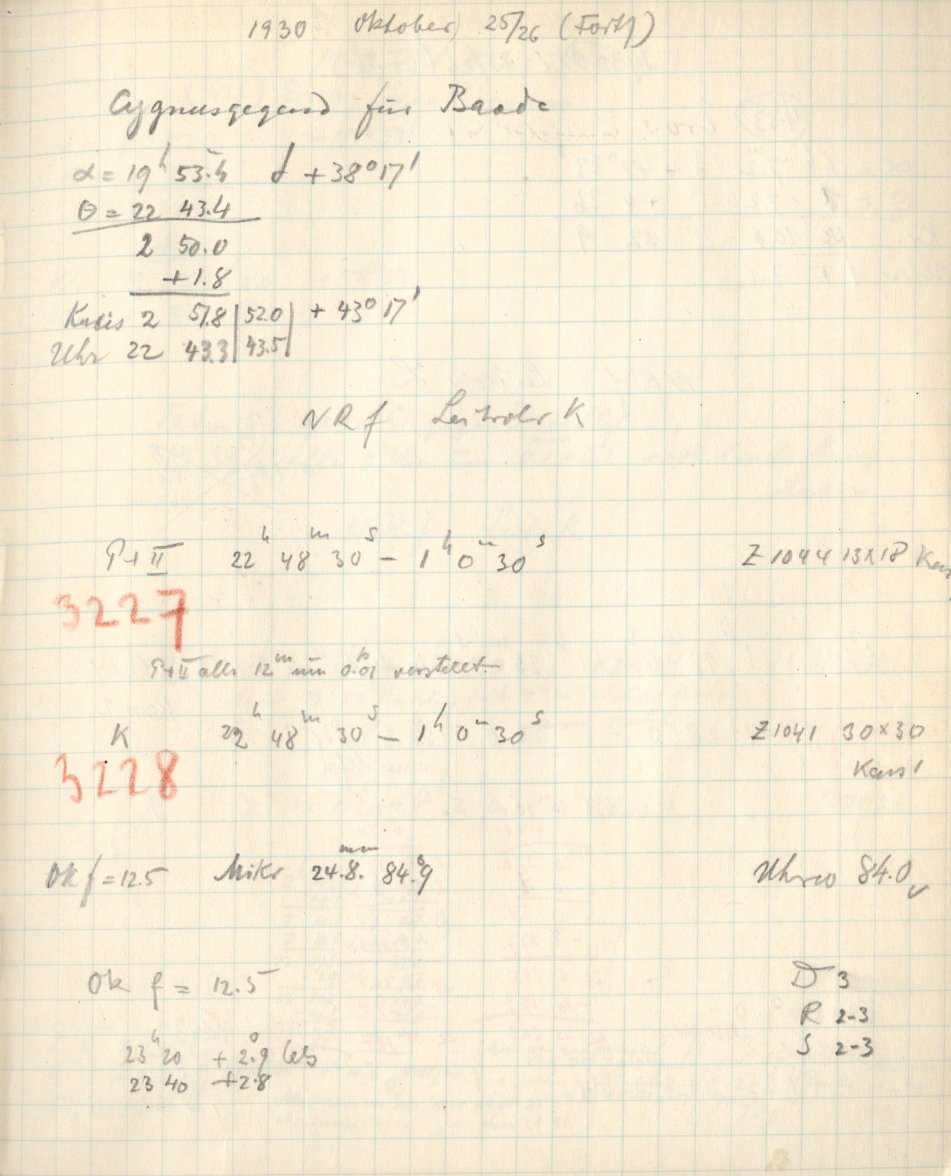 1930 Oktober 25/26 (Fortf)
Cygnusgegend für Baade
α = 19h 53.4 δ +38° 17'
Θ = 22 43.4
2 50.0
+1.8
Kreis 2 51.8 | 52.0 | + 43° 17'
Uhr 22 43.3 | 43.5 |
NRf Leitrohr K
P+II 22h 48m 30s – 1h 0m 30s Z 1044 13x18
3227
P+II alle 12m um 0.01 verstellt
K 22h 48m 30s – 1h 0m 30s Z 1041 30x30
3228
Ok f = 12.5 Mikr 24.8. 84.9 84.0
Ok f = 12.5 D 3
R 2-3
S 2-3
23h 20 + 2.9
23 40 +2.8